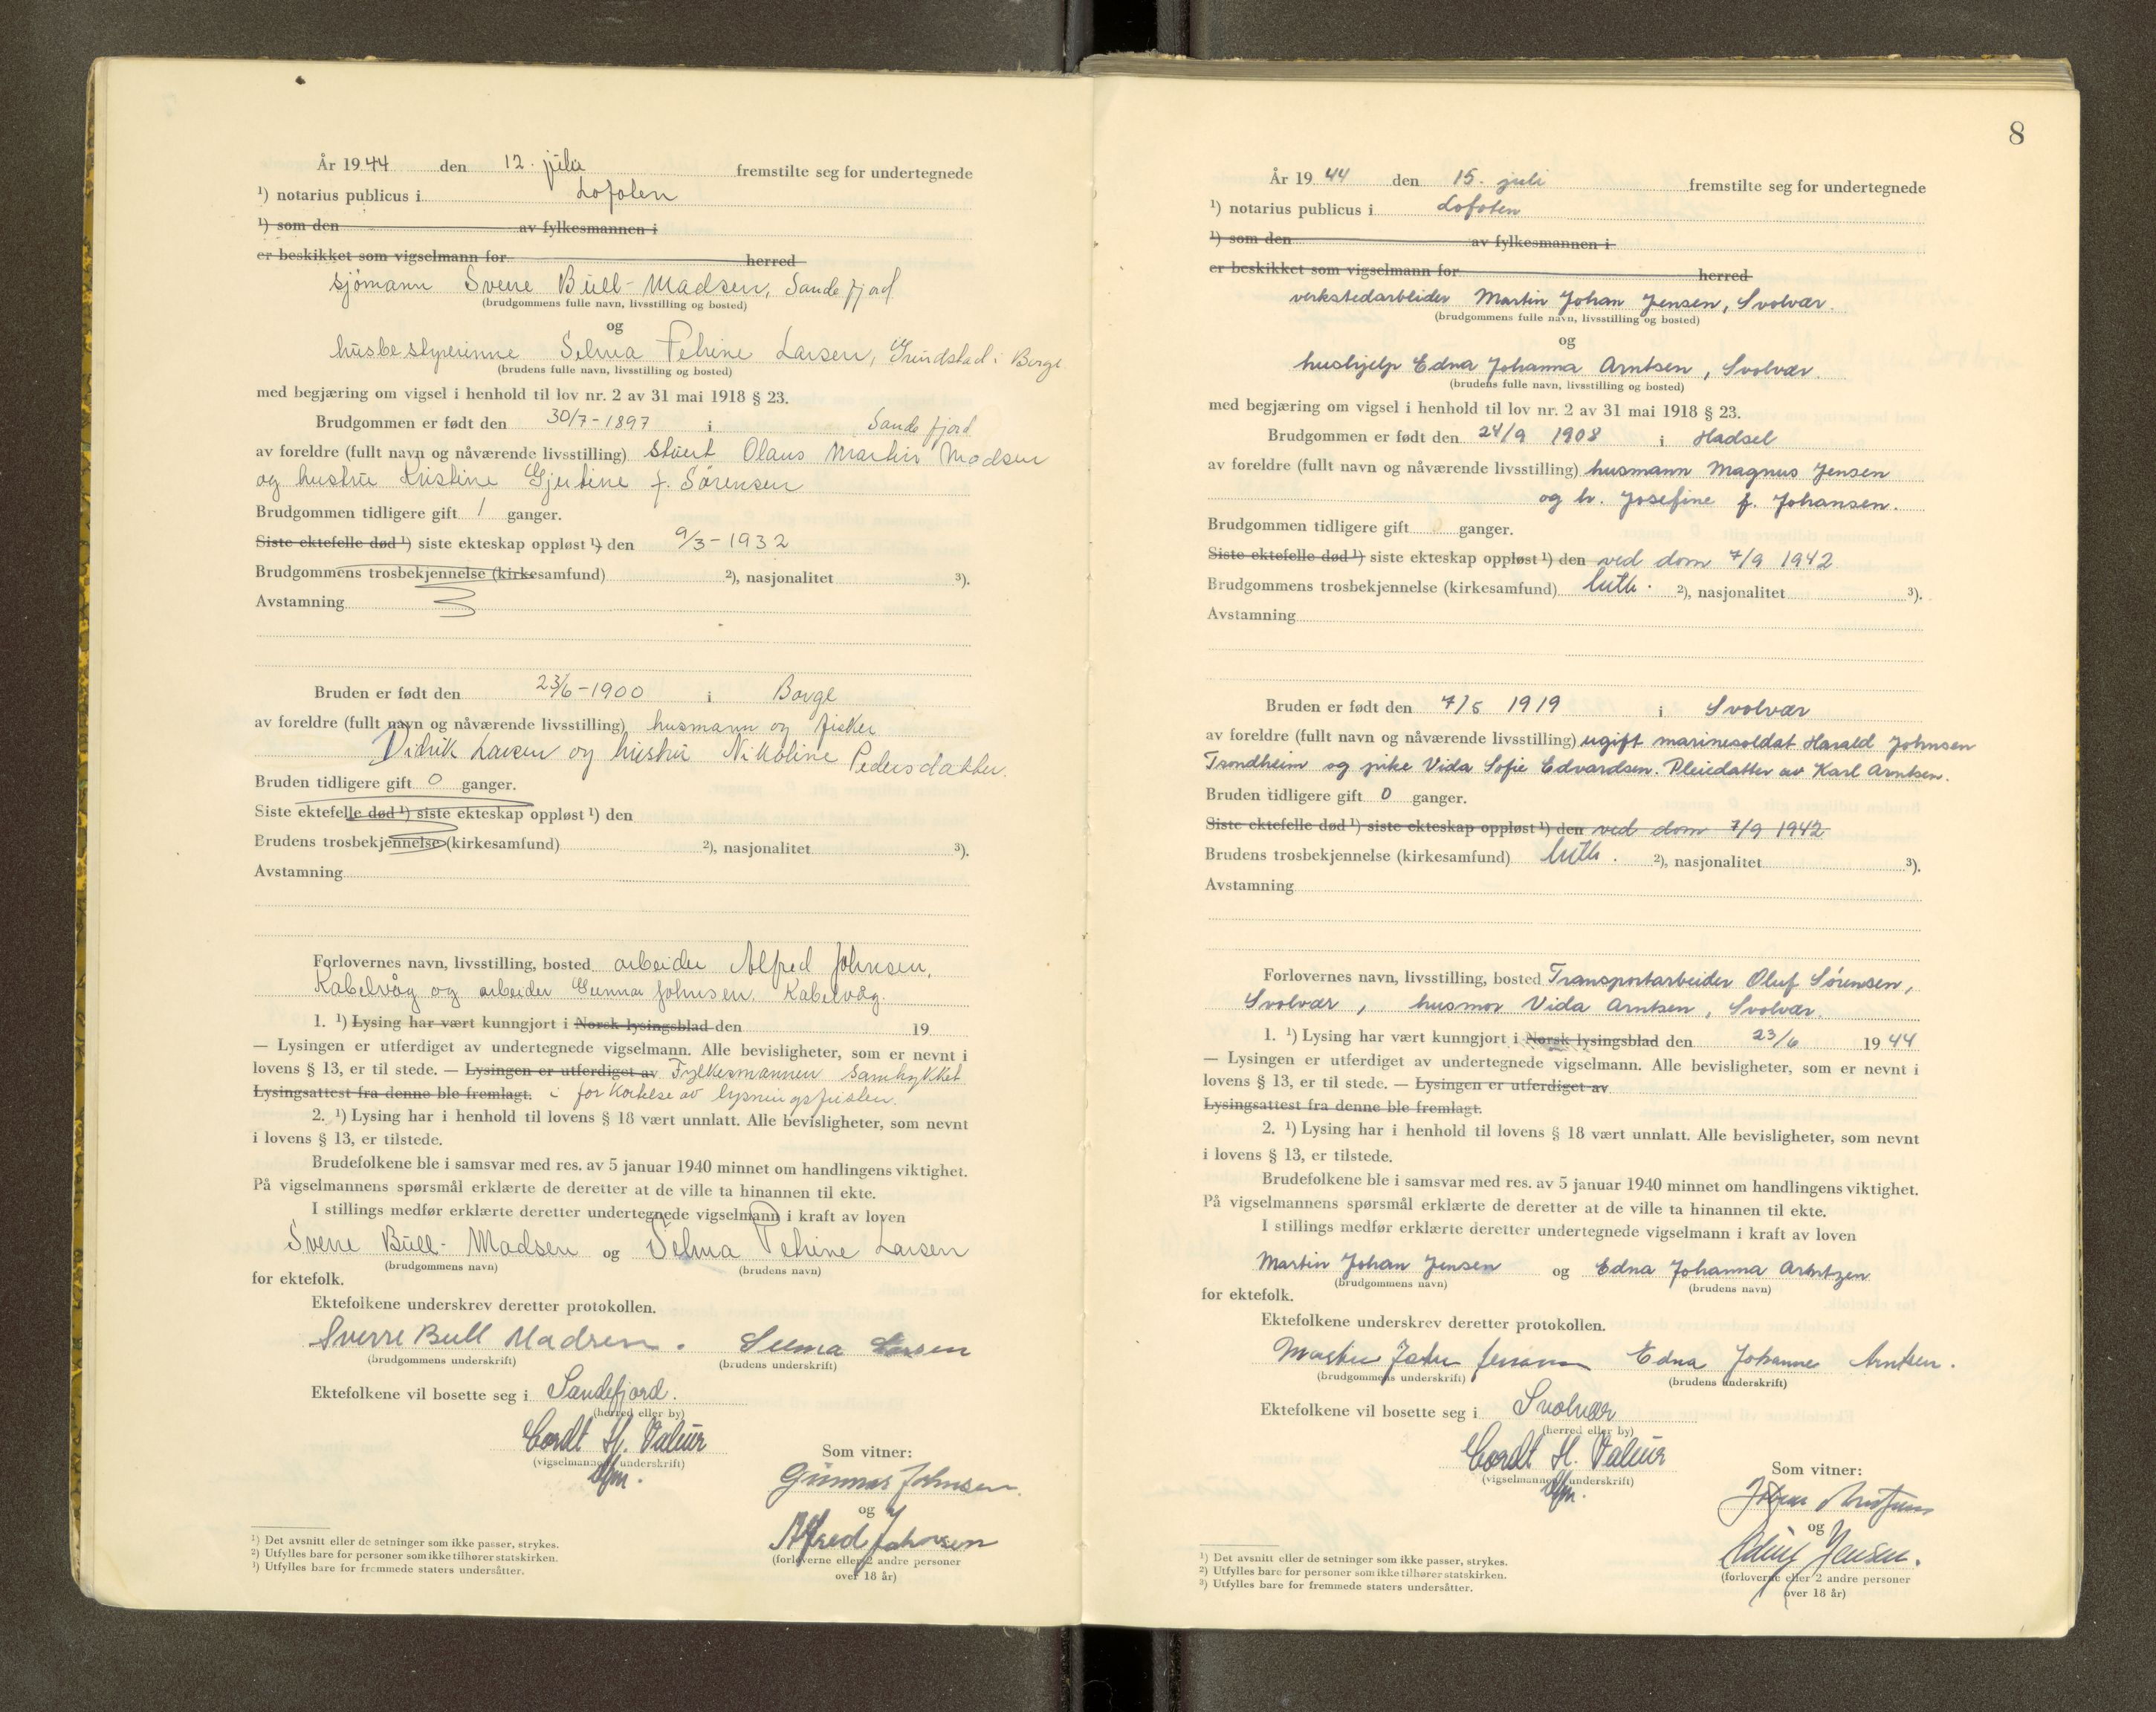 År 1944 den 12. juli fremstilte seg for undertegnede
¹) notarius publicus i Lofoten
¹) som den av fylkesmannen i
er beskikket som vigselmann for herred
sjømann Sverre Bull-Madsen, Sandefjord
(brudgommens fulle navn, livsstilling og bosted)
og
husbestyrerinne Selma Petrine Larsen, Grundstad i Borge
(brudens fulle navn, livsstilling og bosted)
med begjæring om vigsel i henhold til lov nr. 2 av 31 mai 1918 § 23.
Brudgommen er født den 30/7-1897 i Sandefjord
av foreldre (fullt navn og nåværende livsstilling) stuert Olaus Martin Madsen
og hustru Kristine Gjertine f. Sørensen
Brudgommen tidligere gift 1 ganger.
Siste ektefelle død ¹) siste ekteskap oppløst ¹) den 9/3-1932
Brudgommens trosbekjennelse (kirkesamfund) ²), nasjonalitet ³).
Avstamning
Bruden er født den 23/6-1900 i Borge
av foreldre (fullt navn og nåværende livsstilling) husmann og fisker
Didrik Larsen og hustru Nikoline Pedersdatter.
Bruden tidligere gift 0 ganger.
Siste ektefelle død ¹) siste ekteskap oppløst ¹) den
Brudens trosbekjennelse (kirkesamfund) ²), nasjonalitet ³).
Avstamning
Forlovernes navn, livsstilling, bosted arbeider Alfred Johnsen,
Kabelvåg og arbeider Gunnar Johnsen. Kabelvåg.
1. ¹) Lysing har vært kunngjort i Norsk lysingsblad den 19
— Lysingen er utferdiget av undertegnede vigselmann. Alle bevisligheter, som er nevnt i
lovens § 13, er til stede. — Lysingen er utferdiget av Fylkesmannen samtykket
Lysingsattest fra denne ble fremlagt. i forkortelse av lysningsfristen.
2. ¹) Lysing har i henhold til lovens § 18 vært unnlatt. Alle bevisligheter, som nevnt
i lovens § 13, er tilstede.
Brudefolkene ble i samsvar med res. av 5 januar 1940 minnet om handlingens viktighet.
På vigselmannens spørsmål erklærte de deretter at de ville ta hinannen til ekte.
I stillings medfør erklærte deretter undertegnede vigselmann i kraft av loven
Sverre Bull-Madsen og Selma Petrine Larsen
(brudgommens navn) (brudens navn)
for ektefolk.
Ektefolkene underskrev deretter protokollen.
Sverre Bull Madsen. Selma Larsen
(brudgommens underskrift) (brudens underskrift)
Ektefolkene vil bosette seg i Sandefjord.
(herred eller by)
Cordt H. Valeur
(vigselmannens underskrift)
Som vitner:
Gunnar Johnsen.
og
Alfred Johnsen
(forloverne eller 2 andre personer
over 18 år)
¹) Det avsnitt eller de setninger som ikke passer, strykes.
²) Utfylles bare for personer som ikke tilhører statskirken.
³) Utfylles bare for fremmede staters undersåtter.
8
År 1944 den 15. juli fremstilte seg for undertegnede
¹) notarius publicus i Lofoten
¹) som den av fylkesmannen i
er beskikket som vigselmann for herred
verkstedarbeider Martin Johan Jensen, Svolvær.
(brudgommens fulle navn, livsstilling og bosted)
og
hushjelp Edna Johanna Arntsen, Svolvær.
(brudens fulle navn, livsstilling og bosted)
med begjæring om vigsel i henhold til lov nr. 2 av 31 mai 1918 § 23.
Brudgommen er født den 24/9 1908 i Hadsel
av foreldre (fullt navn og nåværende livsstilling) husmann Magnus Jensen
og h. Josefine f. Johansen.
Brudgommen tidligere gift 0 ganger.
Siste ektefelle død ¹) siste ekteskap oppløst ¹) den ved dom 7/9 1942
Brudgommens trosbekjennelse (kirkesamfund) luth. ²), nasjonalitet ³).
Avstamning
Bruden er født den 7/5 1919 i Svolvær
av foreldre (fullt navn og nåværende livsstilling) ugift marinesoldat Harald Johnsen
Trondheim og pike Vida Sofie Edvardsen. Pleiedatter av Karl Arntsen.
Bruden tidligere gift 0 ganger.
Siste ektefelle død ¹) siste ekteskap oppløst ¹) den ved dom 7/9 1942
Brudens trosbekjennelse (kirkesamfund) luth. ²), nasjonalitet ³).
Avstamning
Forlovernes navn, livsstilling, bosted Transportarbeider Oluf Sørensen,
Svolvær, husmor Vida Arntsen, Svolvær.
1. ¹) Lysing har vært kunngjort i Norsk lysingsblad den 23/6 1944
— Lysingen er utferdiget av undertegnede vigselmann. Alle bevisligheter, som er nevnt i
lovens § 13, er til stede. — Lysingen er utferdiget av
Lysingsattest fra denne ble fremlagt.
2. ¹) Lysing har i henhold til lovens § 18 vært unnlatt. Alle bevisligheter, som nevnt
i lovens § 13, er tilstede.
Brudefolkene ble i samsvar med res. av 5 januar 1940 minnet om handlingens viktighet.
På vigselmannens spørsmål erklærte de deretter at de ville ta hinannen til ekte.
I stillings medfør erklærte deretter undertegnede vigselmann i kraft av loven
Martin Johan Jensen og Edna Johanna Arntzen
(brudgommens navn) (brudens navn)
for ektefolk.
Ektefolkene underskrev deretter protokollen.
Martin Johan Jensen Edna Johanne Arntsen.
(brudgommens underskrift) (brudens underskrift)
Ektefolkene vil bosette seg i Svolvær
(herred eller by)
Cordt H. Valeur
(vigselmannens underskrift)
Som vitner:
og
Jensen.
(forloverne eller 2 andre personer
over 18 år)
¹) Det avsnitt eller de setninger som ikke passer, strykes.
²) Utfylles bare for personer som ikke tilhører statskirken.
³) Utfylles bare for fremmede staters undersåtter.